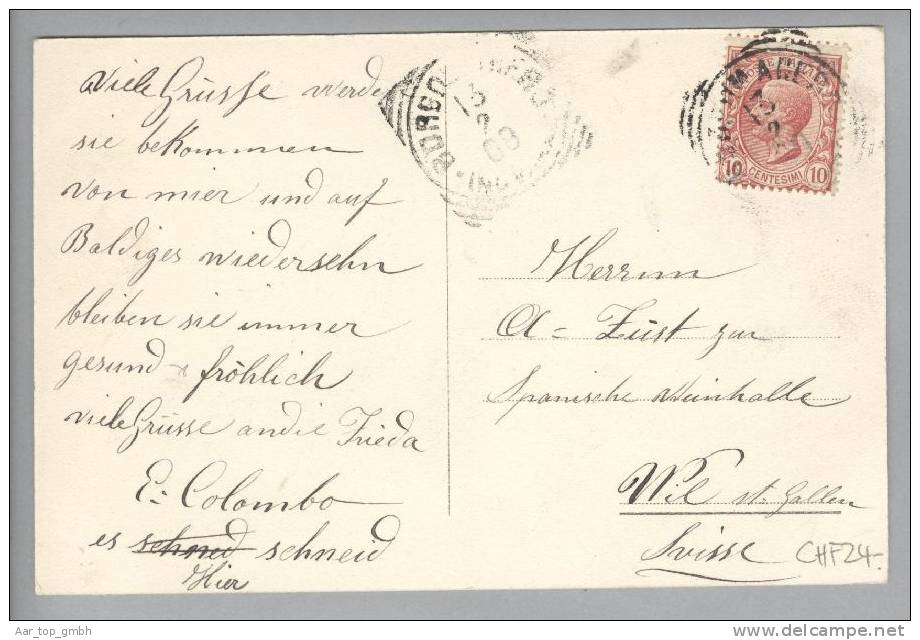 viele Grüsse werde
sie bekommen
von mier und auf
Baldiges wiedersehn
bleiben sie immer
gesund fröhlich
viele Grüsse andie Frieda
E. Colombo
es schneid
Hier
10 CENTESIMI 10
Herrnn
A = Züst zur
Spanische Weinhalle
Wil st. Gallen
Svisse
CHF24-
Aar_top_gmbh
delcampe.net